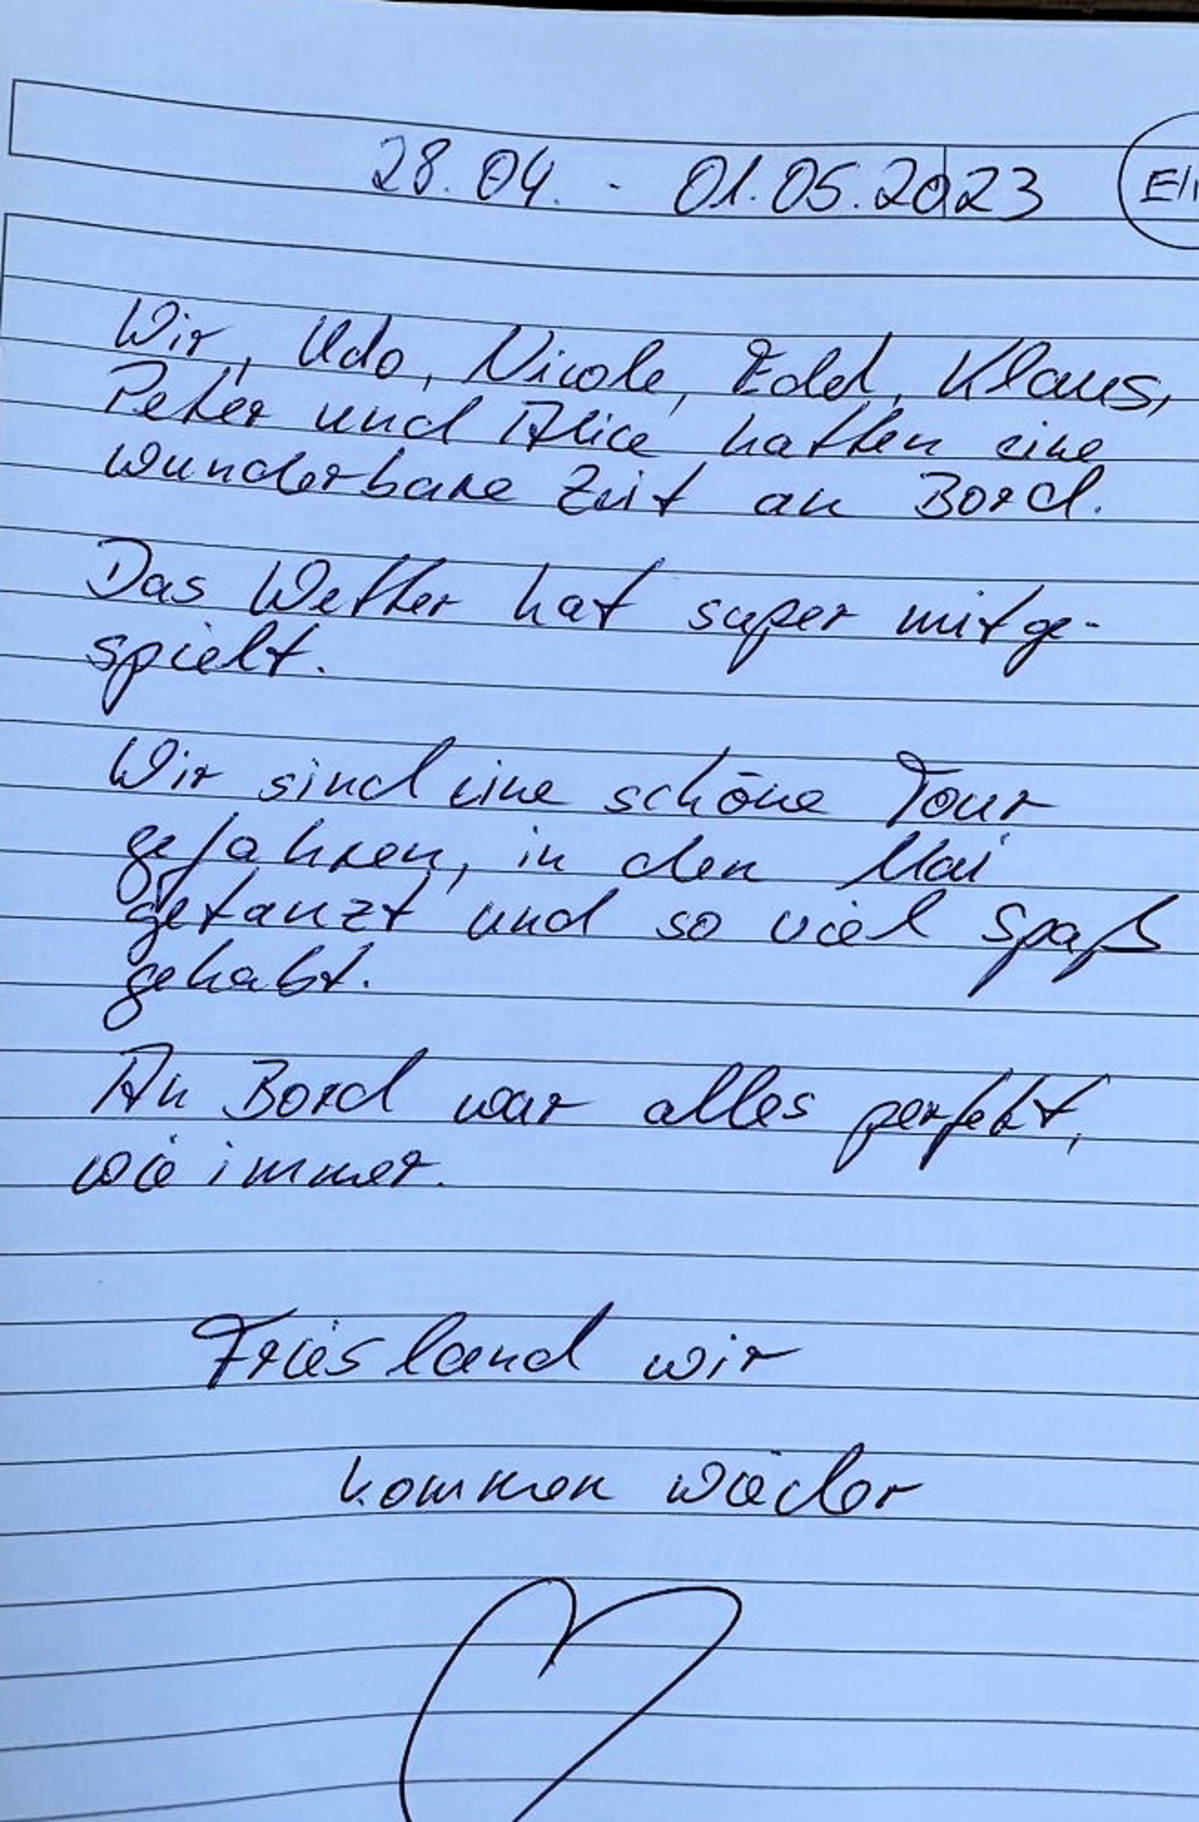 28.04. - 01.05.2023
Wir, Udo, Nicole, Edel, Klaus,
Peter und Alice hatten eine
wunderbare Zeit an Bord.
Das Wetter hat super mitge-
spielt.
Wir sind eine schöne Tour
gefahren, in den Mai
getanzt und so viel Spaß
gehabt.
An Bord war alles perfekt,
wie immer.
Friesland wir
kommen wieder